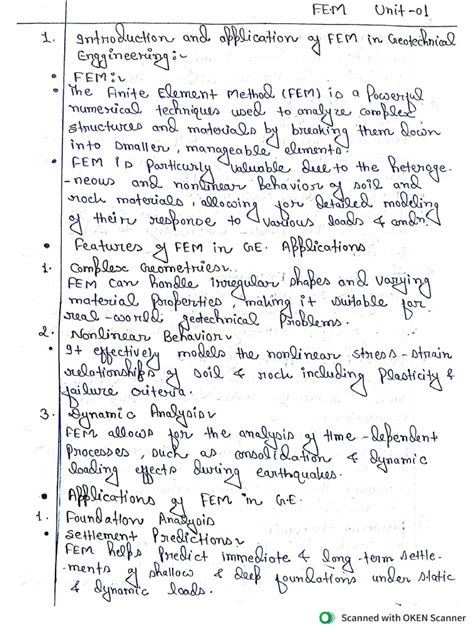 FEM Unit-01
1. Introduction and application of FEM in Geotechnical
Enggineering:-
• FEM:-
• The Finite Element Method (FEM) is a Powerful
numerical techniques used to analyze complex
structures and materials by breaking them down
into smaller, manageable elements.
• FEM is Particurly valuable due to the heteroge-
-neous and nonlinear Behavior of soil and
rock materials, allowing for detailed modeling
of their response to various loads &
• Features of FEM in GE. Applications
1. Complex Geometries
FEM can handle irregular shapes and varying
material properties making it suitable for
real-world geotechnical Problems.
2. Nonlinear Behavior
• It effectively models the nonlinear stress-strain
relationships of soil & rock including Plasticity &
failure criteria.
3. Dynamic Analysis
FEM allows for the analysis of time-dependent
Processes, such as consolidation & dynamic
loading effects during earthquakes.
• Applications of FEM in G.E.
1. Foundation Analysis
• Settlement Predictions
FEM helps Predict immediate & long-term settle-
-ments of shallow & deep foundations under static
& dynamic loads.
Scanned with OKEN Scanner